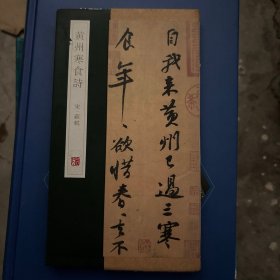 黄州寒食詩
宋 蘇軾
自我来黄州已過三寒
食年〻欲惜春〻去不